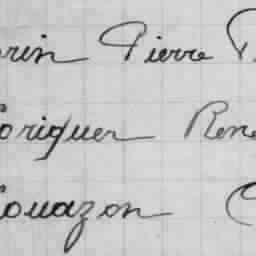 orin Pierre P
Coriquer René
Couazon C